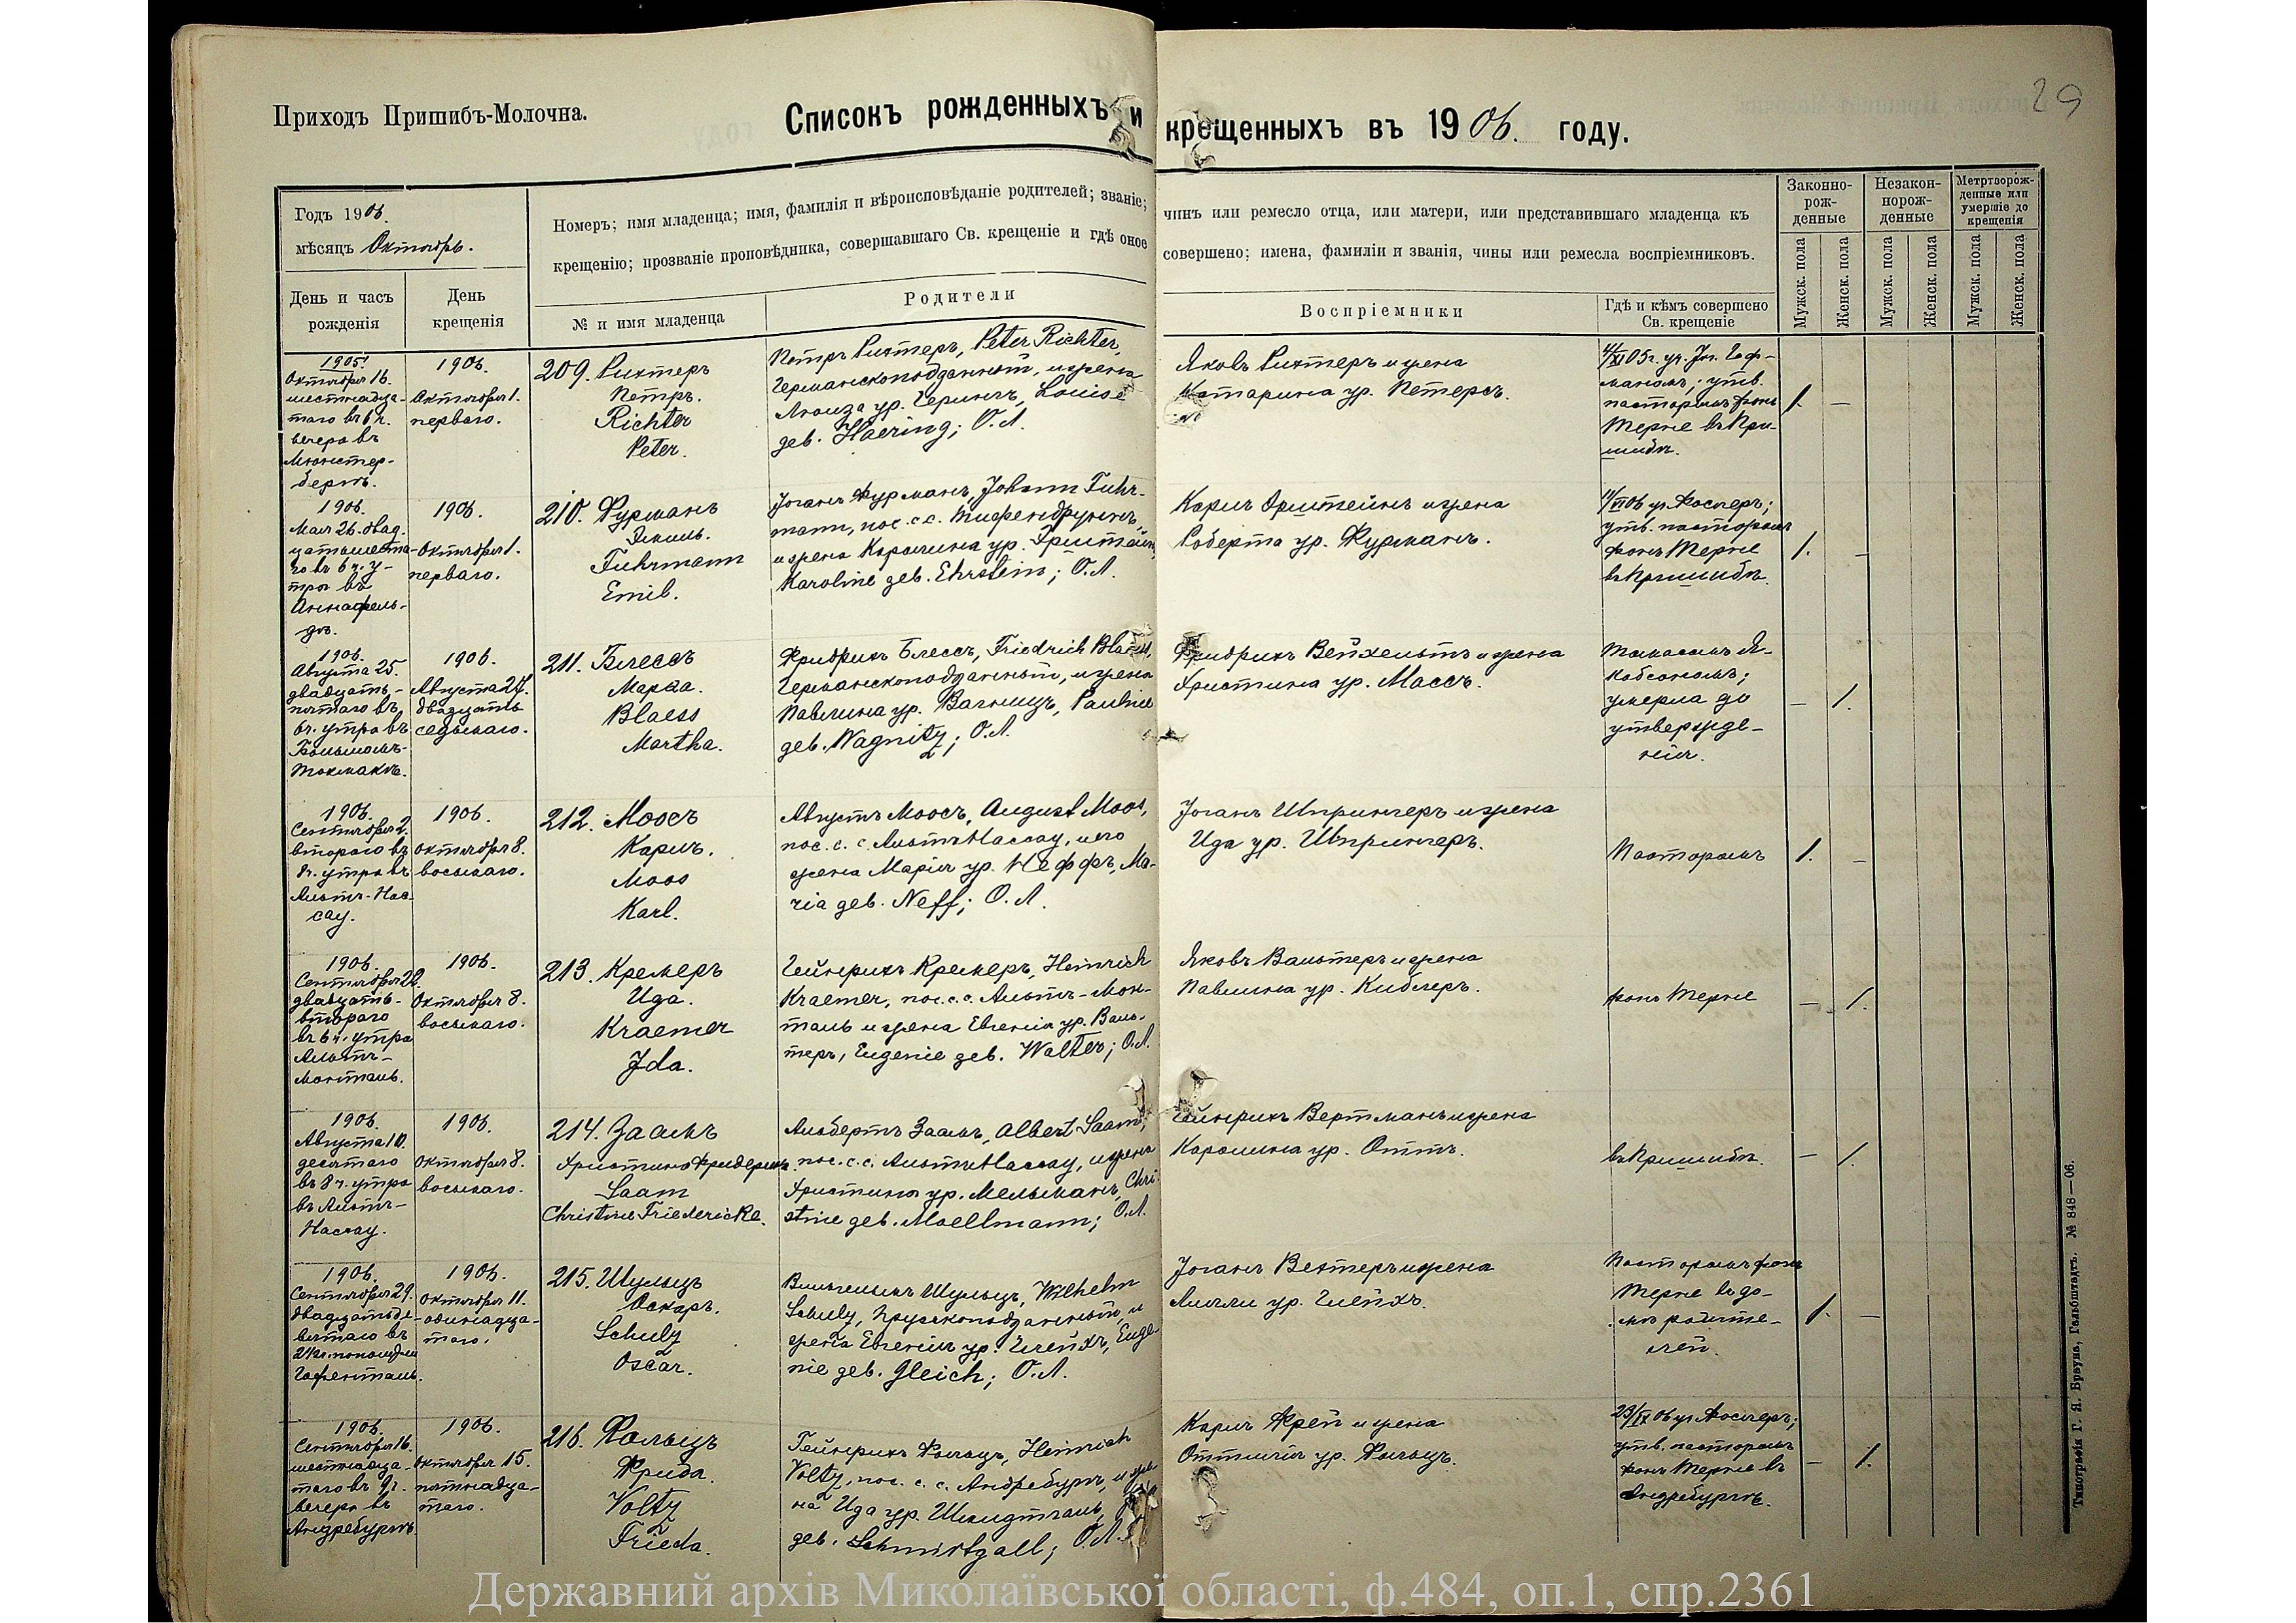 29
Приходъ Пришибъ-Молочна.
Списокъ рожденныхъ и крещенныхъ въ 1906. году.
Годъ 1906.
мѣсяцъ Октябрь.
Номеръ; имя младенца; имя, фамилія и вѣроисповѣданіе родителей; званіе; чинъ или ремесло отца, или матери, или представившаго младенца къ
крещенію; прозваніе проповѣдника, совершавшаго Св. крещеніе и гдѣ оное совершено; имена, фамиліи и званія, чины или ремесла воспріемниковъ.
Законно-
рож-
денные
Незакон-
норож-
денные
Метртворож-
денные или
умершіе до
крещенія
День и часъ
рожденія
День
крещенія
№ и имя младенца
Родители
Воспріемники
Гдѣ и кѣмъ совершено
Св. крещеніе
Мужск. пола
Женск. пола
Мужск. пола
Женск. пола
Мужск. пола
Женск. пола
1905.
Октября 16.
шестнадца-
таго въ 6 ч.
вечера въ
Мюнстер-
бергѣ.
1906.
Октября 1.
перваго.
209. Рихтеръ
Петръ.
Richter
Peter.
Петръ Рихтеръ, Peter Richter,
Германскоподданный, и жена
Луиза ур. Герингъ, Louise
geb. Haering; О.Л.
Яковъ Рихтеръ и жена
Катарина ур. Петерсъ.
XI 05 г. уч. Іог. Гоф-
маномъ; утв.
пасторомъ фонъ
Терне въ При-
шибѣ.
1. —
1906.
Мая 26. двад-
цатьшеста-
го въ 6 ч. у-
тра въ
Аннафель-
дѣ.
1906.
Октября 1.
перваго.
210. Фурманъ
Эмиль.
Fuhrmann
Emil.
Іоганъ Фурманъ, Johann Fuhr-
mann, пос. с.с. Тифенбруннъ,
и жена Каролина ур. Эрштейнъ,
Karoline geb. Ehrstein; О.Л.
Карлъ Эрштейнъ и жена
Роберта ур. Фурманъ.
VI 06 уч. Фослеръ;
утв. пасторомъ
фонъ Терне
въ Пришибѣ.
1. —
1906.
Августа 25.
двадцать-
пятаго въ
6 ч. утра въ
Большомъ-
Токмакѣ.
1906.
Августа 27.
двадцать
седьмаго.
211. Блессъ
Марѳа.
Blaess
Martha.
Фридрихъ Блессъ, Friedrich Blaess,
Германскоподданный, и жена
Павлина ур. Вагницъ, Pauline
geb. Wagnitz; О.Л.
Фридрихъ Вейхельтъ и жена
Христина ур. Массъ.
Томасомъ Я-
кобсономъ;
умерла до
утвержде-
нія.
— 1.
1906.
Сентября 2.
втораго въ
8 ч. утра въ
Альтъ-Нас-
сау.
1906.
Октября 8.
восьмаго.
212. Моосъ
Карлъ.
Moos
Karl.
Августъ Моосъ, August Moos,
пос. с. с. Альтъ Нассау, и его
жена Марія ур. Неффъ, Ma-
ria geb. Neff; О.Л.
Іоганъ Шпрингеръ и жена
Ида ур. Шпрингеръ.
Пасторомъ
1. —
1906.
Сентября 22.
двадцать-
втораго
въ 6 ч. утра
Альтъ-
Монталь.
1906.
Октября 8.
восьмаго.
213. Кремеръ
Ида.
Kraemer
Ida.
Гейнрихъ Кремеръ, Heinrich
Kraemer, пос. с. с. Альтъ-Мон-
таль и жена Евгенія ур. Валь-
теръ, Eugenie geb. Walter; О.Л.
Яковъ Вальтеръ и жена
Павлина ур. Киблеръ.
фонъ Терне
— 1.
1906.
Августа 10.
десятаго
въ 8 ч. утра
въ Альтъ-
Нассау.
1906.
Октября 8.
восьмаго.
214. Заамъ
Христина Фридерика.
Saam
Christine Friedericke.
Альбертъ Заамъ, Albert Saam,
пос. с. с. Альтъ Нассау, и жена
Христина ур. Мельманъ, Chri-
stine geb. Moellmann; О.Л.
Гейнрихъ Вертманъ и жена
Каролина ур. Оттъ.
въ Пришибѣ.
— 1.
1906.
Сентября 29.
двадцатьде-
вятаго въ
2 ч. пополудни
Гофенталь.
1906.
Октября 11.
одинадца-
таго.
215. Шульцъ
Оскаръ.
Schulz
Oscar.
Вильгельмъ Шульцъ, Wilhelm
Schulz, Прусскоподданный и
жена Евгенія ур. Глейхъ, Euge-
nie geb. Gleich; О.Л.
Іоганъ Вехтеръ и жена
Лилли ур. Глейхъ.
Пасторомъ фонъ
Терне въ до-
мѣ родите-
лей.
1. —
1906.
Сентября 16.
шестнадца-
таго въ 9 ч.
вечера въ
Андребургѣ.
1906.
Октября 15.
пятнадца-
таго.
216. Фольцъ
Фрида.
Voltz
Frieda.
Гейнрихъ Фольцъ, Heinrich
Voltz, пос. с. с. Андребургъ, и же-
на Ида ур. Шмидтгаль,
geb. Schmidtgall; О.Л.
Карлъ Фрей и жена
Оттилія ур. Фольцъ.
23/IX 06 уч. Фослеръ;
утв. пасторомъ
фонъ Терне въ
Андребургѣ.
— 1.
Типографія Г. Я. Брауна, Гальбштадтъ. № 848—06.
Державний архів Миколаївської області, ф.484, оп.1, спр.2361